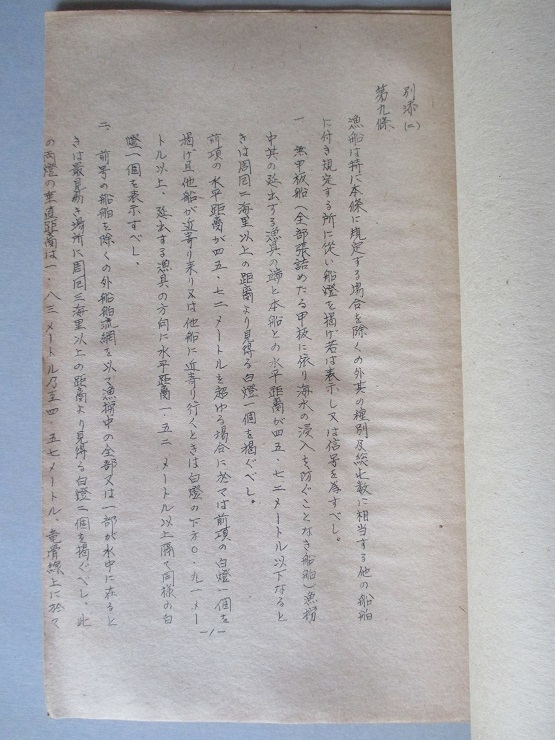 別添(二)
第九條
漁船は特に本條に規定する場合を除くの外其の種別及総屯数に相当する他の船舶
に付き規定する所に従い船燈を掲げ若は表示し又は信号を為すべし。
一 無甲板船(全部張詰めたる甲板に依り海水の浸入を防ぐことなき船舶)漁撈
中其の延出する漁具の端と本船との水平距離が四五・七二メートル以下なると
きは周囲二海里以上の距離より見得る白燈一個を掲ぐべし。
前項の水平距離が四五・七二メートルを超ゆる場合に於ては前項の白燈一個を
掲げ且他船が近寄り来り又は他船に近寄り行くときは白燈の下方〇・九一メー
トル以上、延出する漁具の方向に水平距離一・五二メートル以上隔て同様の白
燈一個を表示すべし。
二 前号の船舶を除くの外船舶流網を以て漁撈中の全部又は一部が水中に在ると
きは最見易き場所に周囲三海里以上の距離より見得る白燈二個を掲ぐべし、此
の両燈の垂直距離は一・八三メートル乃至四・五七メートル、竜骨線上に於
-1-